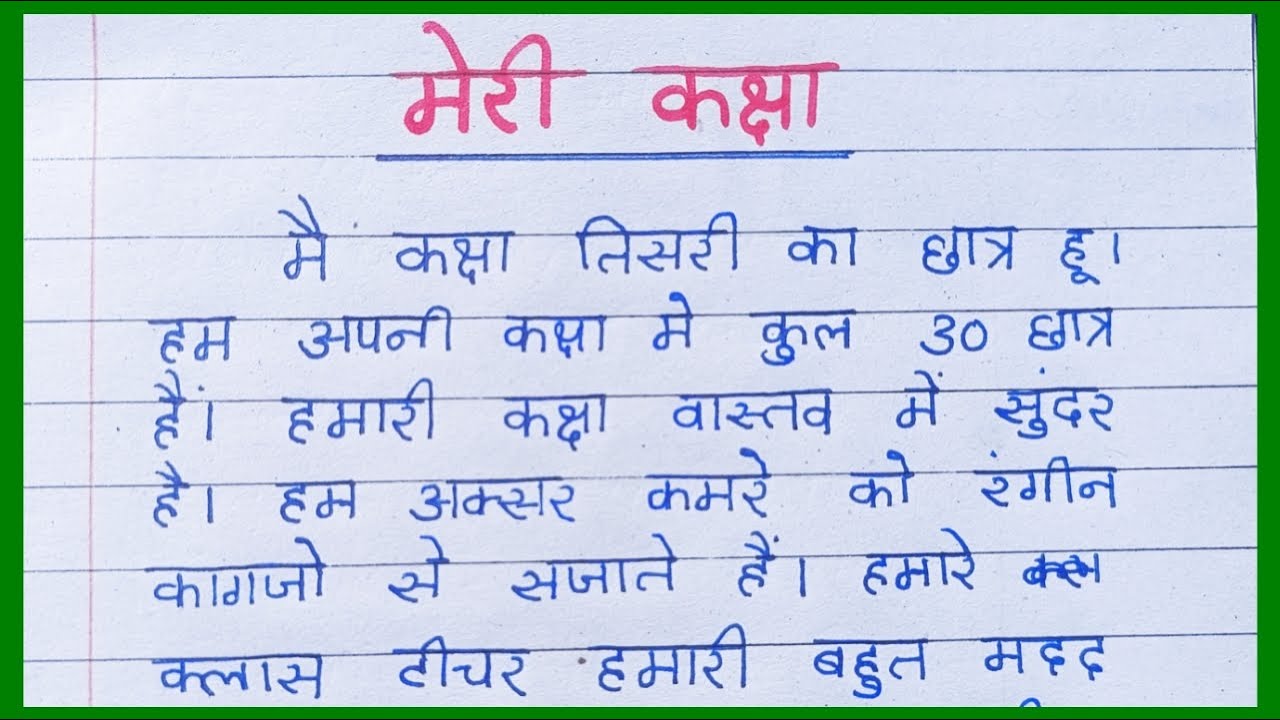 मेरी कक्षा
मै कक्षा तिसरी का छात्र हू।
हम अपनी कक्षा मे कुल 30 छात्र
हैं। हमारी कक्षा वास्तव में सुंदर
है। हम अक्सर कमरे को रंगीन
कागजो से सजाते हैं। हमारे
क्लास टीचर हमारी बहुत मदद